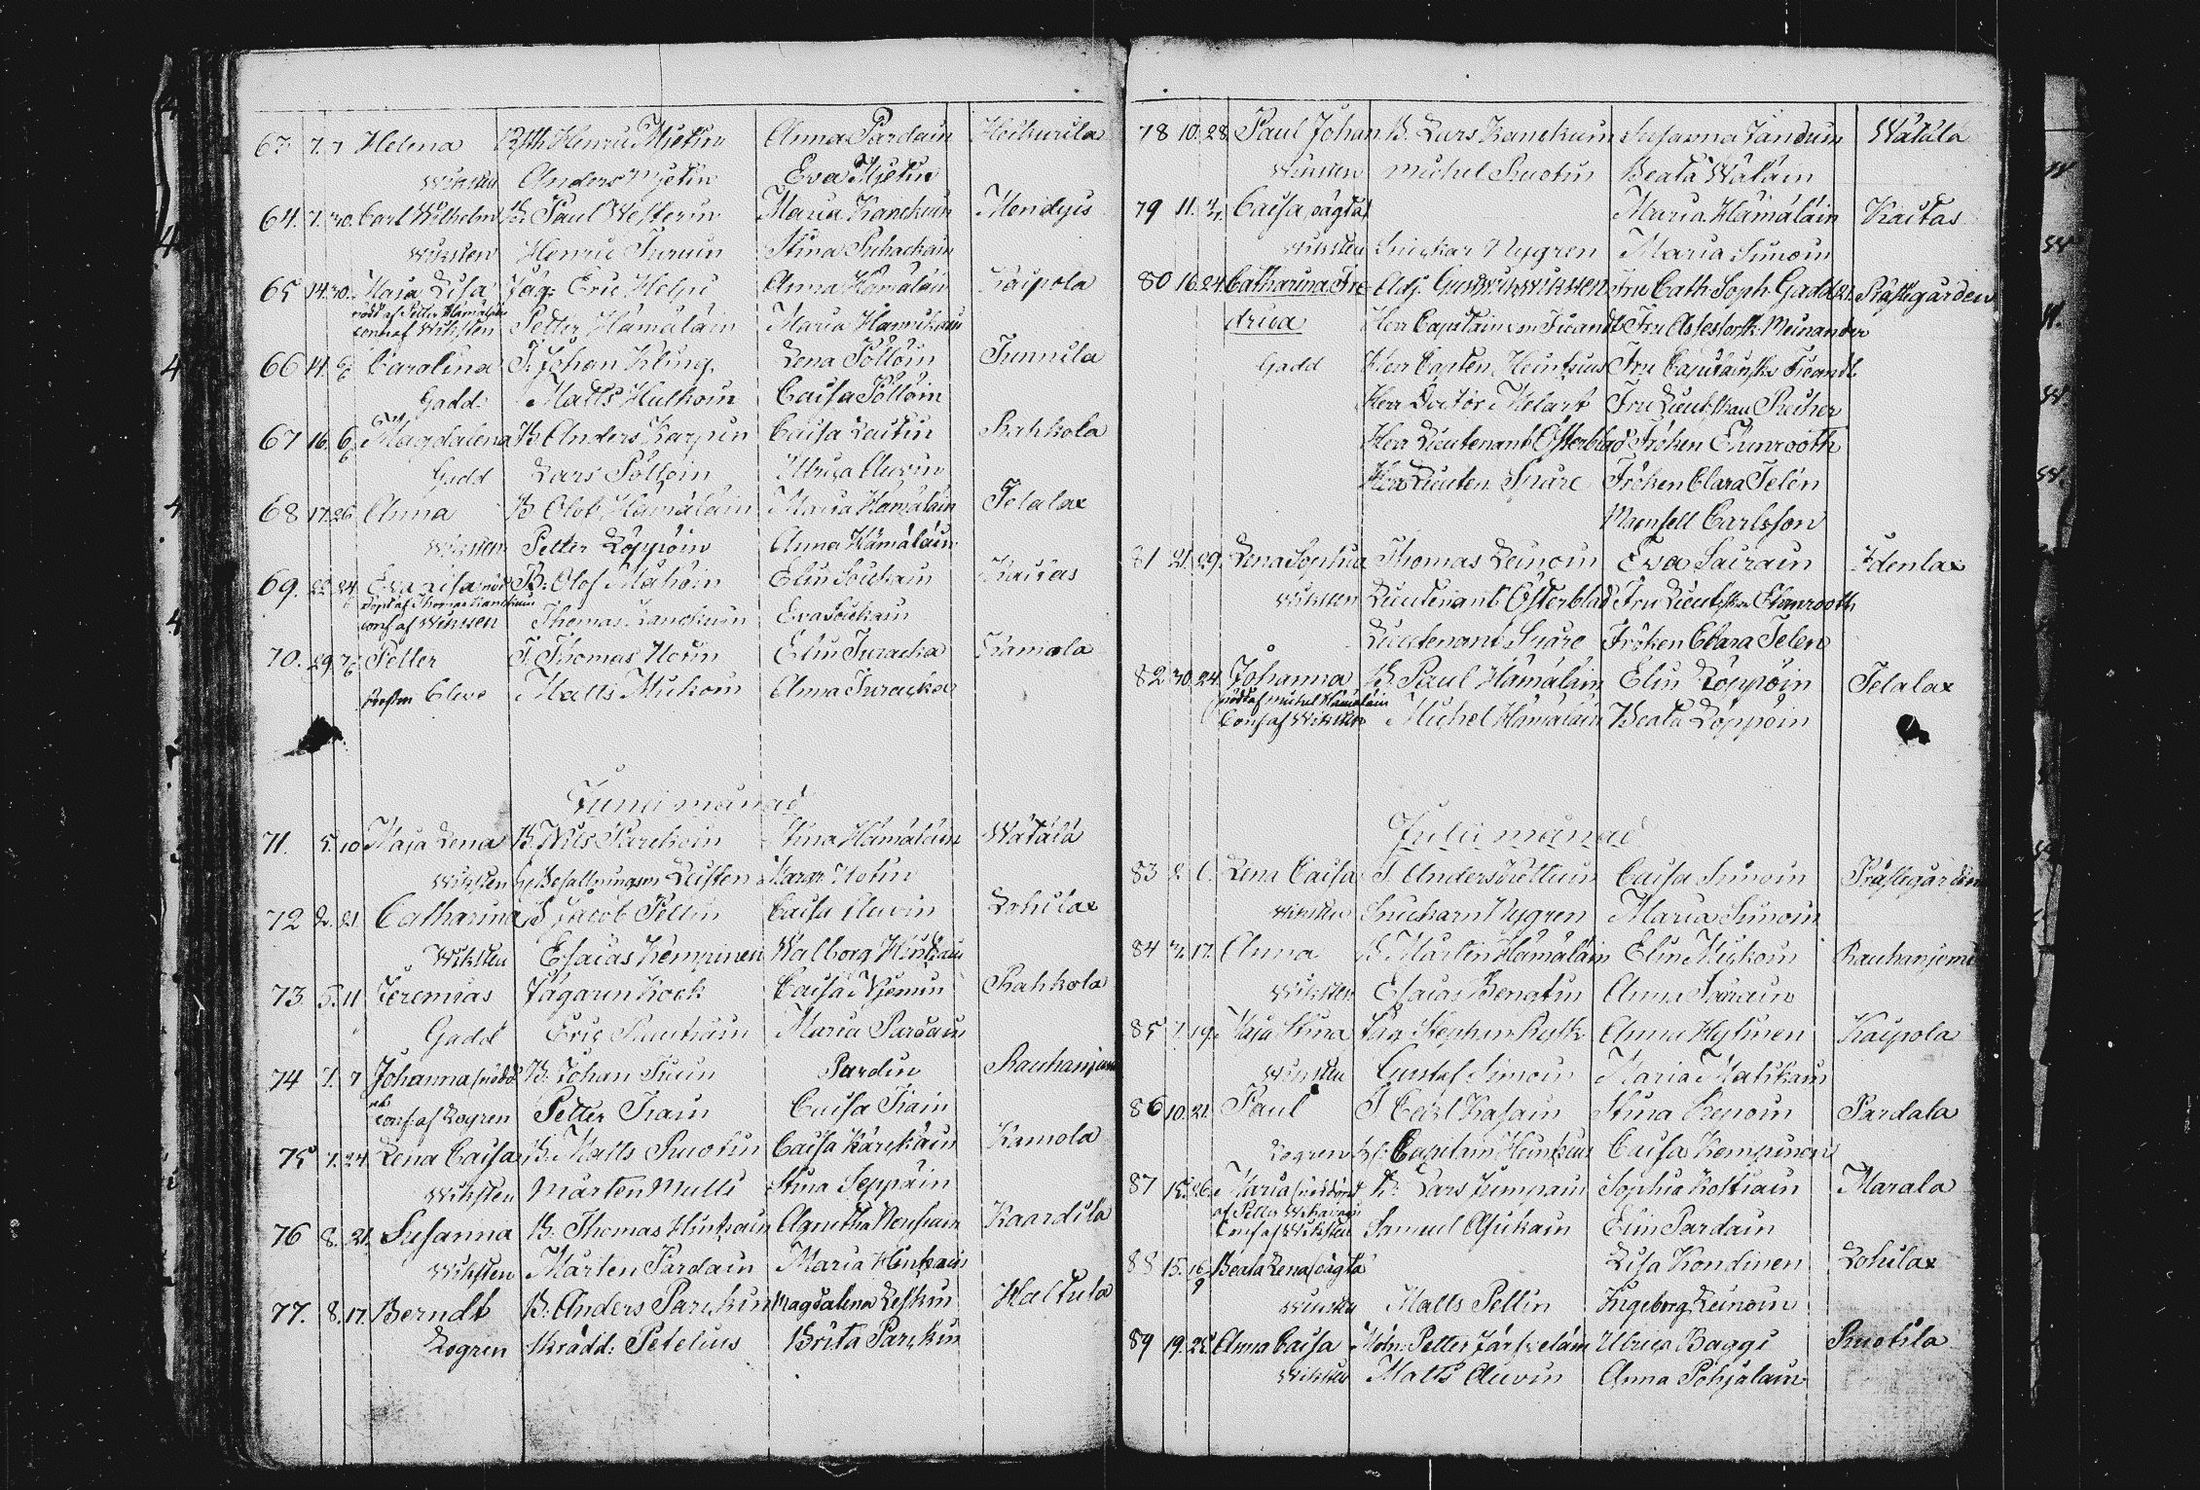 63. 7. 7 Helena Rsth Henric Mietin Anna Pardain Hockurila
Wiksten Anders Mjetin Eva Mjetin
64. 7. 30. Carl Wilhelm B. Paul Westerin Maria Kanckuin Mondyis
Wiksten Henric Turuin Stina Puhackain
65 14. 30. Maja Lisa Jäg. Eric Helpi Anna Hämäläin Kaipola
nöddt af Petter Hämäläin
conf af Wiksten Petter Hämäläin Maria Hannikain
66 14. Carolina T. Johan Kling Lena Pöllöin Tunnila
Gadd. Matts Hulkoin Caisa Pöllöin
67 16. 6/6 Magdalena B. Anders Karpin Caisa Lautin Rahkola
Gadd Lars Pöllöin Ulrica Auvin
68 17. 26 Anna B. Olof Hämäläin Maria Hämäläin Telalax
Wiksten Petter Löppöin Anna Hämäläin
69. 22. 24. Eva Lisa nöd B. Olof Mähöin Elin Soickain Kaitas
döpt af Thomas Kanckuin
conf af Wiksten Thomas Kanckuin Eva Soickain
70. 29. Petter T. Thomas Notin Elin Turacka Kamola
Cleve Matts Mickoin Anna Turacka
Junii månad
71. 5. 10 Maja Lena B. Nils Parckoin Stina Hämäläin Wätälä
Wiksten Befallningsm Leisten Margr Notin
72 2. 21. Catharina T Jacob Pellin Caisa Auvin Lohilax
Wiksten Esaias Kempinen Walborg Hintzain
73 5. 11 Jeremias Jägaren Kock Caisa Njemin Rahkola
Gadd Eric Pautiain Maria Pardain
74 7. 7 Johanna nöddt B. Johan Tiain Pardin Rauhanjemi
conf af Logren Petter Tiain Caisa Tiain
75 7. 24. Lena Caisa B. Matts Ruotin Caisa Kärckäin Kamola
Wiksten Mårten Mulli Stina Seppäin
76 8. 21. Susanna B. Thomas Hintzain Agnetha Nousiain Kaardila
Wiksten Mårten Pardain Maria Hintzain
77. 8. 17. Berndt B. Anders Parckin Magdalena Leskin Haltula
Logren Skrädd: Petelius Brita Parckin
78 10. 28. Paul Johan B. Lars Kanckuin Susanna Tanduin Wätälä
Wiksten Michel Ruotin Beata Wätäin
79 11. Caisa, oägta Maria Hämäläin Kaitas
Wiksten Snickar Nygren Maria Simoin
80 16. 24 Catharina Fre- Adj. Gust Wilh Wiksten Fru Cath. Soph. Gadd 21. Prästegården
drica Herr Capitain von Fieandt Fru Assessorsk: Meinander
Gadd Herr Capten Heintzius Fru Capitainskan Fieandt
Herr Doctor Molart Fru Lieutskan Reiher
Herr Lieutenant Österblad Fröken Ehnrooth
Herr Lieuten Snåre Fröken Clara Telen
Mamsell Carlsson
81 21. 29. Lena Sophia Thomas Leinoin Eva Sairain Idenlax
Wiksten Lieutenant Österblad Fru Lieutskan Ehnrooth
Lieutenant Snåre Fröken Clara Telen
82 30. 24. Johanna B. Paul Hämäläin Elin Löppöin Telalax
nöddt af Michel Hämäläin
Conf af Wiksten Michel Hämäläin Beata Löppöin
Julii månad
83 2. 6. Lena Caisa T. Anders Kettuin Caisa Simoin Prästegården
Wiksten Snickarn Nygren Maria Simoin
84 17. Anna B Mårten Hämäläin Elin Mickoin Rauhanjemi
Wiksten Esaias Bengtin Anna Sairain
85 7. 19. Maja Stina Jäg Stephan Rysk Anna Hytinen Kaipola
Wiksten Gustaf Simoin Maria Matikain
86 10. 21. Paul T Carl Kasain Stina Renoin Pardala
Logren Capitain Heintzius Caisa Kempinen
87 15. 26. Maria nöddöpt B. Lars Jumpain Sophia Koltiain Marala
af Petter
Conf af Wiksten Samuel Asikain Elin Pardain
88 15. 16/9 Beata Lena oägta Lisa Kondinen Lohilax
Wiksten Matts Pellin Ingeborg Leinoin
89 19. 25 Anna Caisa Möln: Petter Järfveläin Ulrica Baggi Ruotila
Wiksten Matts Auvin Anna Pohjalain